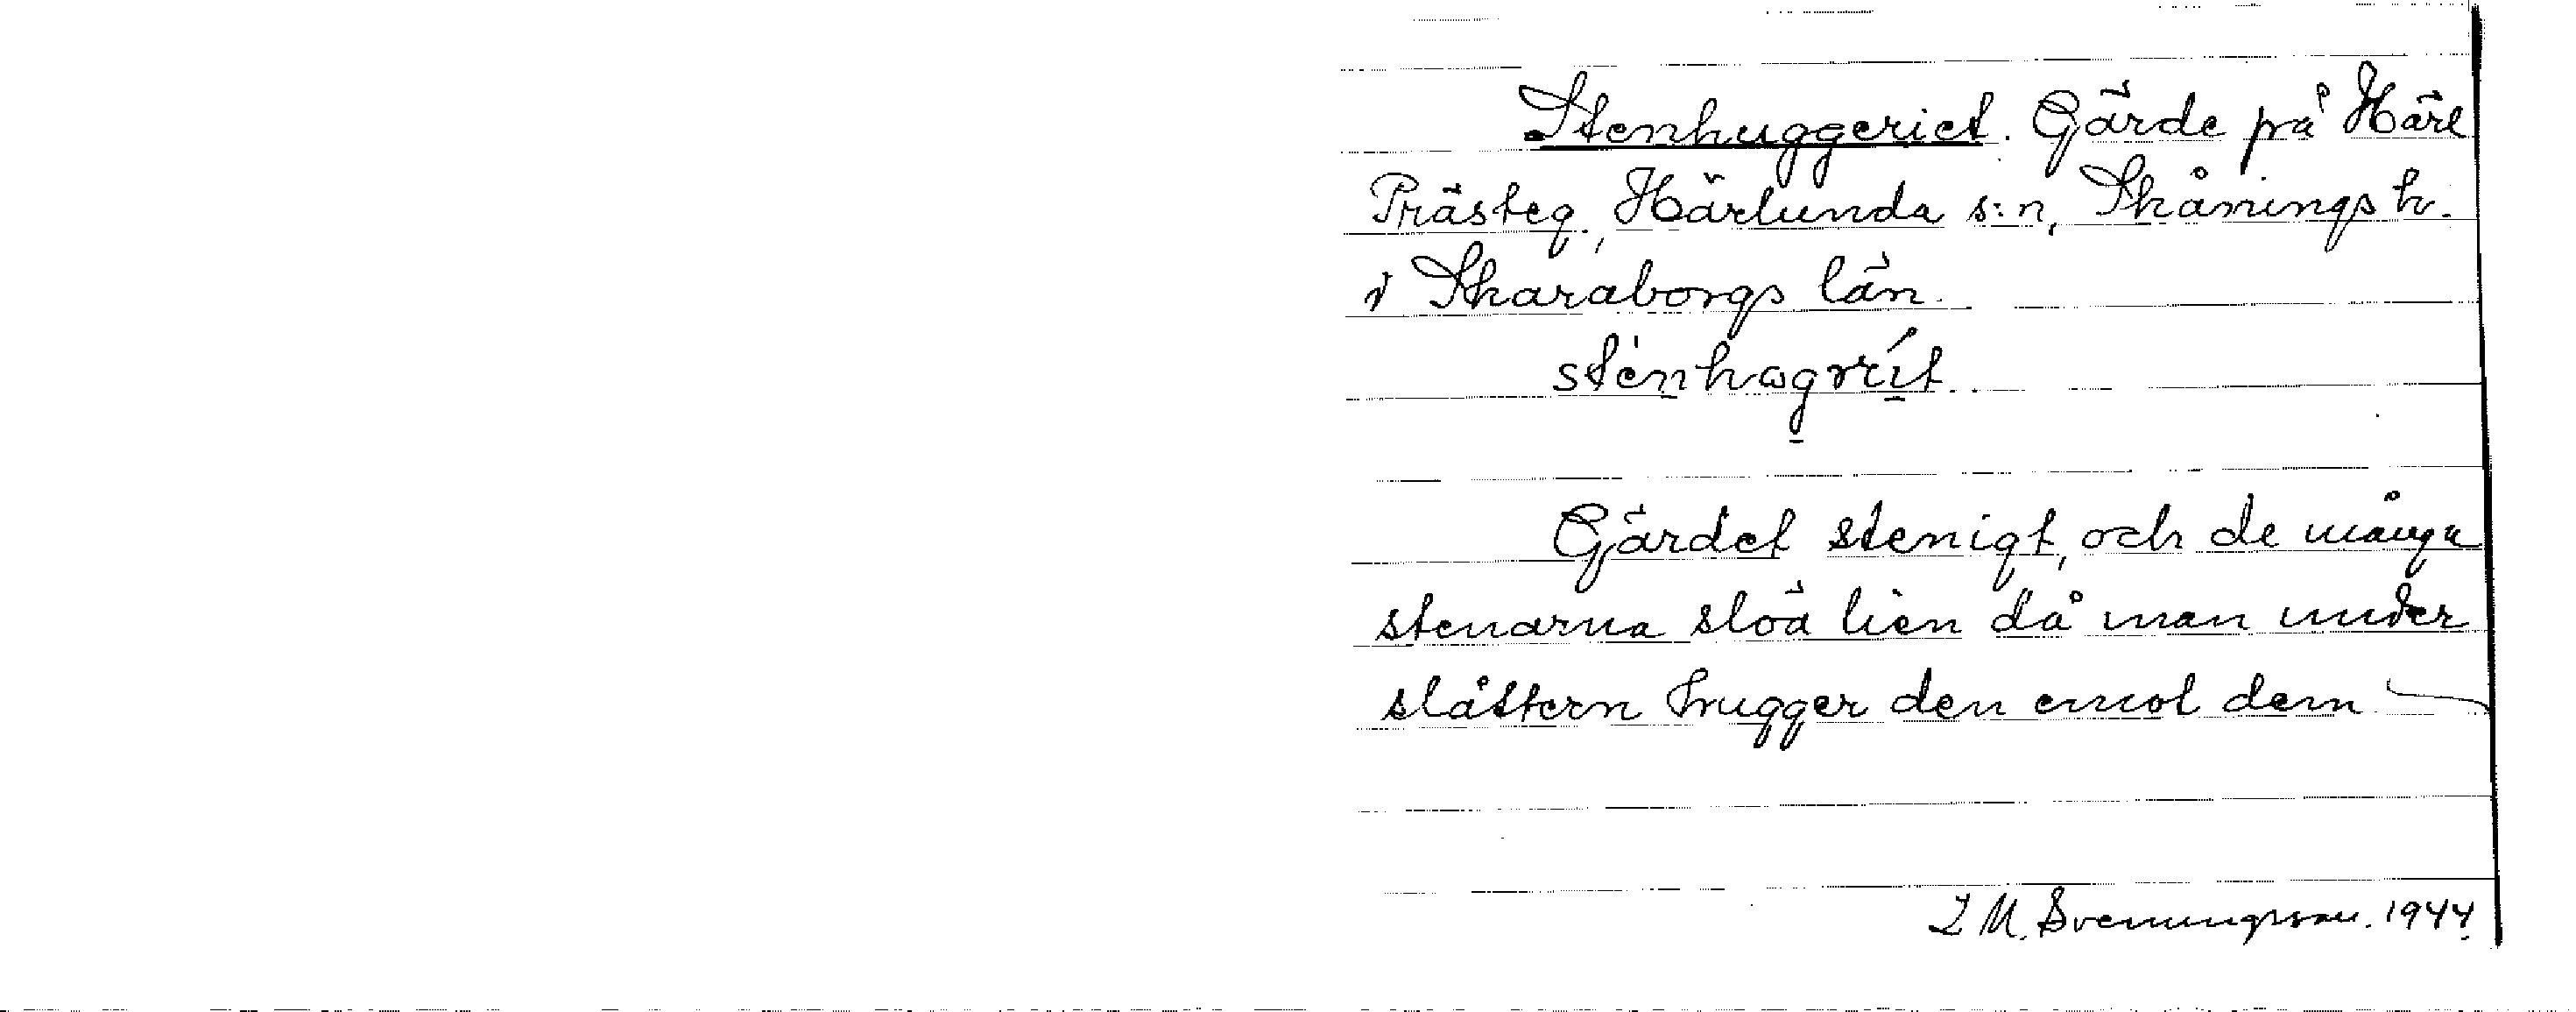 Stenhuggeriet. Gärde på Härl
Prästeg., Härlunda s:n, Skånings h.
i Skaraborgs län.
Gärdet stenigt, och de många
stenarna slöa lien då man under
slåttern hugger den emot dem
I M. Svenungsson. 1944.